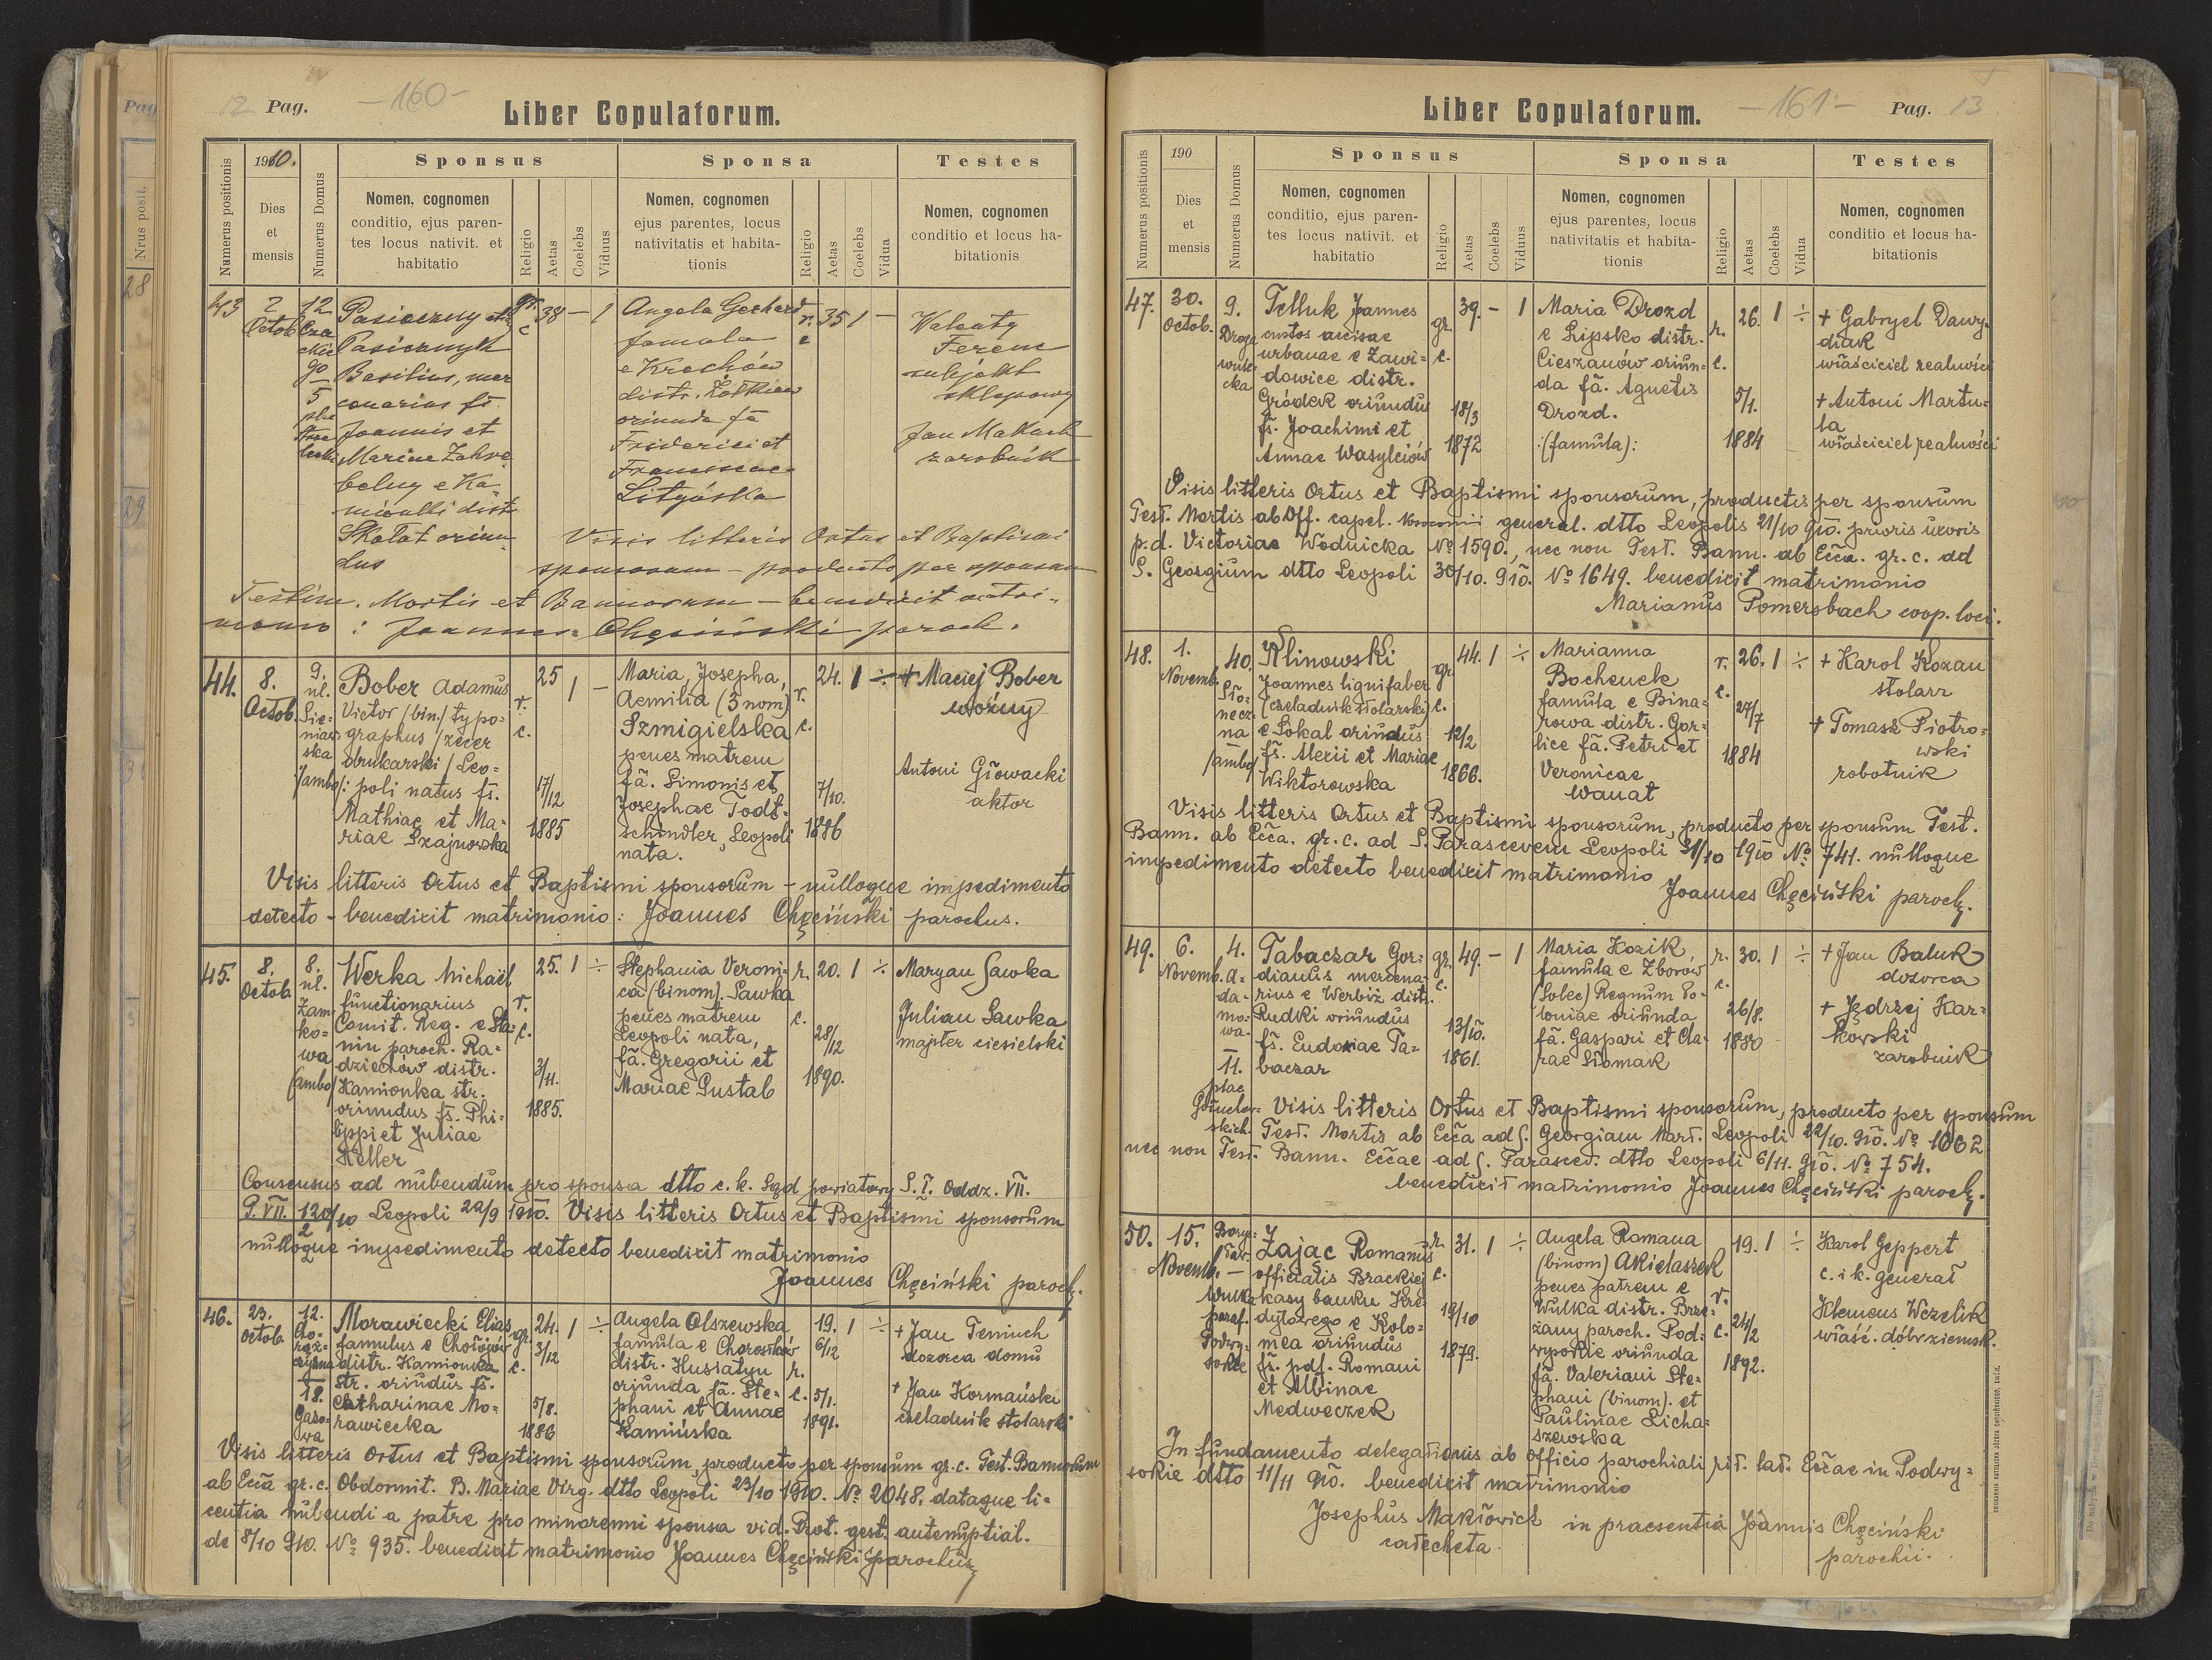 12 Pag. —160—
Liber Copulatorum.
Numerus positionis
1910.
Dies
et
mensis
Numerus Domus
Sponsus
Nomen, cognomen
conditio, ejus paren-
tes locus nativit. et
habitatio
Religio
Aetas
Coelebs
Viduus
Sponsa
Nomen, cognomen
ejus parentes, locus
nativitatis et habita-
tionis
Religio
Aetas
Coelebs
Vidua
Testes
Nomen, cognomen
conditio et locus ha-
bitationis
43
2
Octob
12
Cza
ckie
go
5
Pasieczny
Pasiecznyk
Basilius, mer
cenarius fs.
Joannis et
Mariae Zahre
belny e Ka
mionki distr
Skałat oriun
dus
gr. c
38 — 1
Angela Gerhard
famula
e Krechów
distr. Żółkiew
oriunda fa
Friderici et
Franciscae
Litgóska
r. c
35 1 —
Walenty
Ferenc
subjekt
sklepowy
Jan Malluch
zarobnik
Visis litteris Ortus et Baptismi
sponsorum — producto per sponsum
Testim. Mortis et Bannorum — benedixit matri-
monio : Joannes Chęciński paroch.
44.
8.
Octob.
9.
ul.
Sie=
niaw=
ska
/ambo/:
Bober Adamus
Victor (bin.) typo=
graphus /zecer
drukarski/ Leo=
poli natus fs.
Mathiae et Ma=
riae Szajnowska
r.
c.
25 1 —
17/12
1885
Maria, Josepha,
Aemilia (3 nom)
Szmigielska
penes matrem
fa. Simonis et
Josephae Todt-
schindler, Leopoli
nata.
r.
c.
24. 1 ÷
7/10.
1886
+ Maciej Bober
woźny
Antoni Głowacki
aktor
Visis litteris Ortus et Baptismi sponsorum – nulloque impedimento
detecto – benedixit matrimonio: Joannes Chęciński parochus.
45.
8.
Octob.
8.
ul.
Zam=
ko=
wa
(ambo)
Werka Michaël
functionarius
Comit. Reg. e Sta=
nin paroch. Ra=
dziechów distr.
Kamionka str.
oriundus fs. Phi=
lippi et Juliae
Keller
r.
c.
25. 1 ÷
3/11.
1885.
Stephania Veroni=
ca (binom). Sawka
penes matrem
Leopoli nata,
fa. Gregorii et
Mariae Gustab
r.
c.
20. 1 ÷
28/12
1890.
Maryan Sawka
Julian Sawka
majster ciesielski
Consensus ad nubendum pro sponsa dtto c. k. Sąd powiatowy S. I. Oddz. VII.
P. VII. 120/10 2 Leopoli 22/9 1910. Visis litteris Ortus et Baptismi sponsorum
nulloque impedimento detecto benedixit matrimonio
Joannes Chęciński paroch.
46.
23.
Octob
12.
Cho=
rąż=
czyzna
18.
Gazo=
wa
Morawiecki Elias
famulus e Chołojów
distr. Kamionka
str. oriundus fs.
Catharinae Mo=
rawiecka
gr.
c.
24. 1 ÷
3/12
5/8.
1886
Angela Olszewska
famula e Chorostków
distr. Husiatyn
oriunda fa. Ste=
phani et Annae
Kamińska
r.
c.
19. 1 ÷
6/12
5/1.
1891.
+ Jan Teniuch
dozorca domu
+ Jan Kormański
czeladnik stolarski
Visis litteris Ortus et Baptismi sponsorum, producto per sponsum gr. c. Test. Bannorum
ab Ecca gr. c. Obdormit. B. Mariae Virg. dtto Leopoli 23/10 1910. No 2048. dataque li=
centia nubendi a patre pro minorenni sponsa vid. Prot. gest. antenuptial.
de 8/10 910. No 935. benedixit matrimonio Joannes Chęciński parochus
Liber Copulatorum. —161— Pag. 13
Numerus positionis
190
Dies
et
mensis
Numerus Domus
Sponsus
Nomen, cognomen
conditio, ejus paren-
tes locus nativit. et
habitatio
Religio
Aetas
Coelebs
Viduus
Sponsa
Nomen, cognomen
ejus parentes, locus
nativitatis et habita-
tionis
Religio
Aetas
Coelebs
Vidua
Testes
Nomen, cognomen
conditio et locus ha-
bitationis
47.
30.
Octob.
9.
Telluk Joannes
custos accisae
urbanae e Zawi=
dowice distr.
Gródek oriundus
fs. Joachimi et
Annae Wasylciów
gr.
c.
39. – 1
18/3
1872
Maria Drozd
e Lipsko distr.
Cieszanów oriun=
da fa. Agnetis
Drozd.
:(famula):
r.
c.
26. 1 ÷
5/1.
1884
+ Gabryel Dawy=
diak
właściciel realności
+ Antoni Martu=
la
właściciel realności
Visis litteris Ortus et Baptismi sponsorum, productis per sponsum
Test. Mortis ab Off. capel. Nosocomii general. dtto Leopolis 21/10 910. prioris uxoris
p. d. Victoriae Wodnicka No 1590., nec non Test. Bann. ab Ecca. gr. c. ad
S. Georgium dtto Leopoli 30/10. 910. No 1649. benedixit matrimonio
Marianus Pomersbach coop. loci.
48.
1.
Novemb.
40.
Sło=
necz=
na
/ambo/
Klinowski
Joannes lignifaber
(czeladnik stolarski)
e Sokal oriundus
fs. Alexii et Mariae
Wiktorowska
gr.
c.
44. 1 ÷
12/2
1866.
Marianna
Bochenek
famula e Bina=
rowa distr. Gor=
lice fa. Petri et
Veronicae
Wanat
r.
c.
26. 1 ÷
27/7
1884
+ Karol Kozau
stolarz
+ Tomasz Piotro=
wski
robotnik
Visis litteris Ortus et Baptismi sponsorum, producto per sponsum Test.
Bann. ab Ecca. gr. c. ad S. Parascevem Leopoli 31/10 1910 No 741. nulloque
impedimento detecto benedixit matrimonio
Joannes Chęciński paroch.
49.
6.
Novemb.
4.
a=
da=
mo=
wa.
11.
plac
Gołuchow=
skich.
Tabaczar Gor=
dianus mercena=
rius e Werbiż distr.
Rudki oriundus
fs. Eudoxiae Ta=
baczar
gr.
c.
49. – 1
13/10.
1861.
Maria Kozik
famula e Zborów
(Solec) Regnum Po=
loniae oriunda
fa. Gaspari et Cla=
rae Siomak
r.
c.
30. 1 ÷
26/8.
1880
+ Jan Baluk
dozorca
+ Jędrzej Kar=
kowski
zarobnik
Visis litteris Ortus et Baptismi sponsorum, producto per sponsum
Test. Mortis ab Ecca ad S. Georgiam Mart. Leopoli 22/10. 910. No 1062
nec non Test. Bann. Eccae ad S. Parascev. dtto Leopoli 6/11. 910. No 754.
benedicit matrimonio Joannes Chęciński paroch.
50.
15.
Novemb.
Bory=
sław.
—
Wulka
paraf.
Podwy=
sokie
Zając Romanus
officialis Brackiej
kasy banku Kre=
dytowego e Kolo=
mea oriundus
fs. pdf. Romani
et Albinae
Medweczek
r.
c.
31. 1 ÷
19/10
1879.
Angela Romana
(binom) Akielaszek
penes patrem e
Wulka distr. Brze=
żany paroch. Pod=
wysokie oriunda
fa. Valeriani Ste=
phani (binom). et
Paulinae Licha=
szewska
r.
c.
19. 1 ÷
24/2
1892.
Karol Geppert
c. i k. generał
Klemens Wczelik
właśc. dóbr ziemsk.
In fundamento delegationis ab Officio parochiali rit. lat. Eccae in Podwy=
sokie dtto 11/11 910. benedixit matrimonio
Josephus Makłowicz in praesentia Joannis Chęciński
catecheta. parochii.